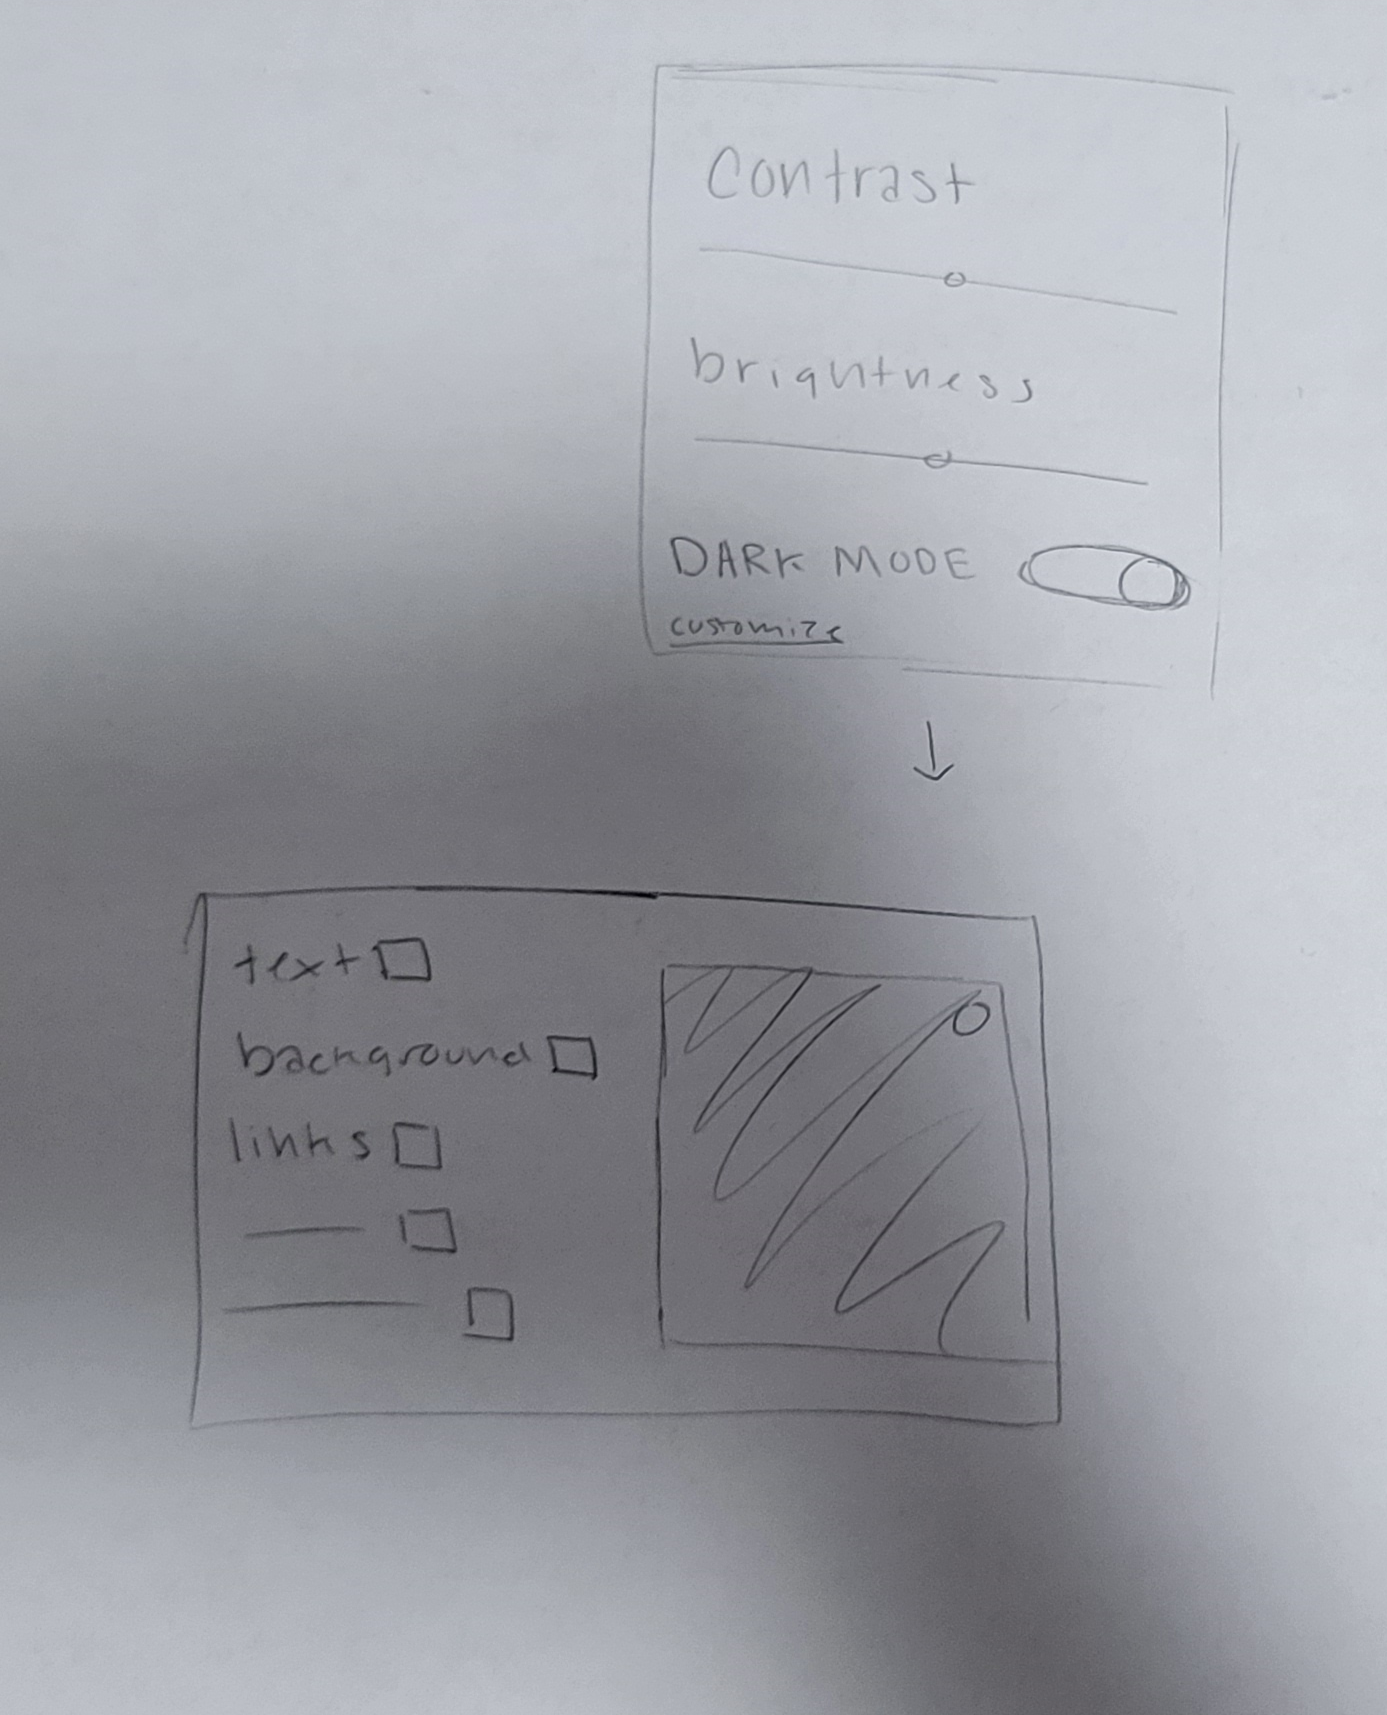 Contrast
brightness
DARK MODE
customize
text
background
links